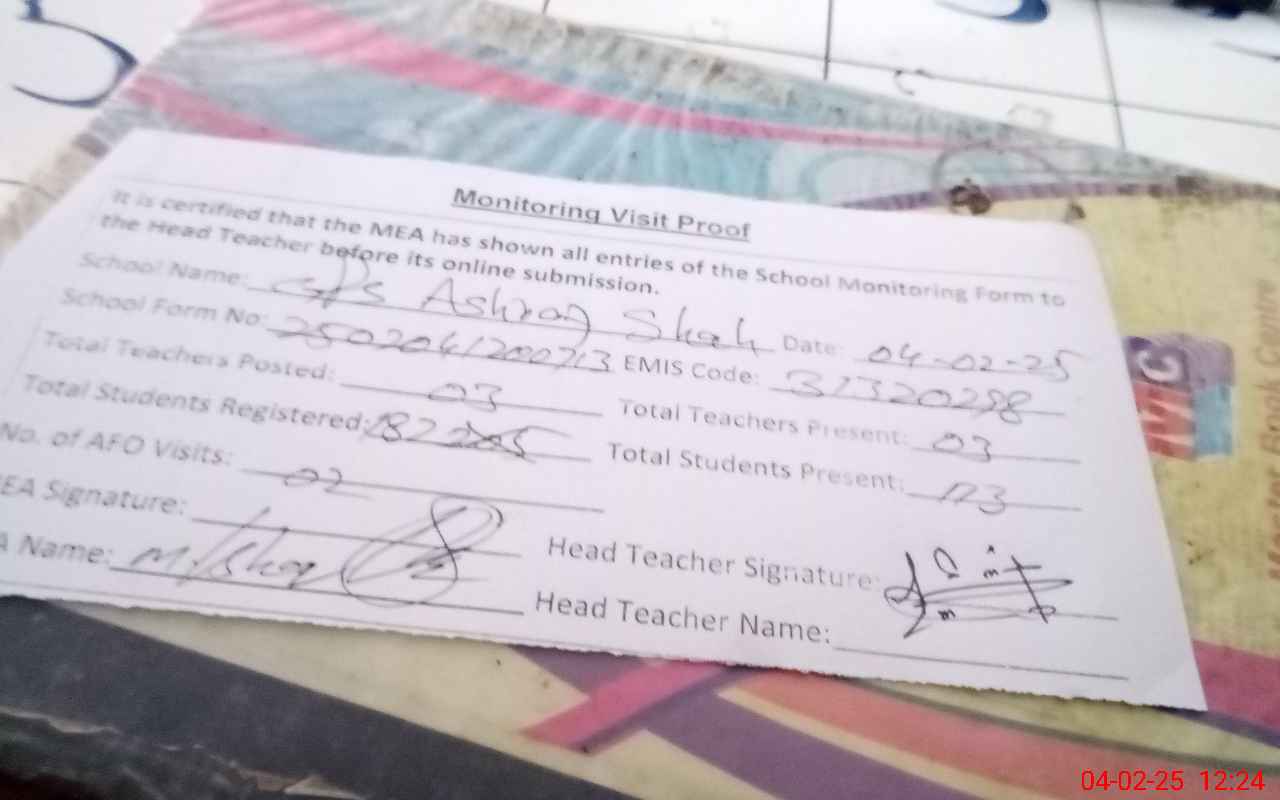 Monitoring Visit Proof
It is certified that the MEA has shown all entries of the School Monitoring Form to
the Head Teacher before its online submission.
School Name: GPS Ashraf Shah Date: 04-02-25
School Form No: 2502041200713 EMIS Code: 31320298
Total Teachers Posted: 03 Total Teachers Present: 03
Total Students Registered: 182 Total Students Present: 173
No. of AFO Visits: 02
EA Signature: Head Teacher Signature:
A Name: M. Ishaq Head Teacher Name:
Master Book Centre
04-02-25 12:24